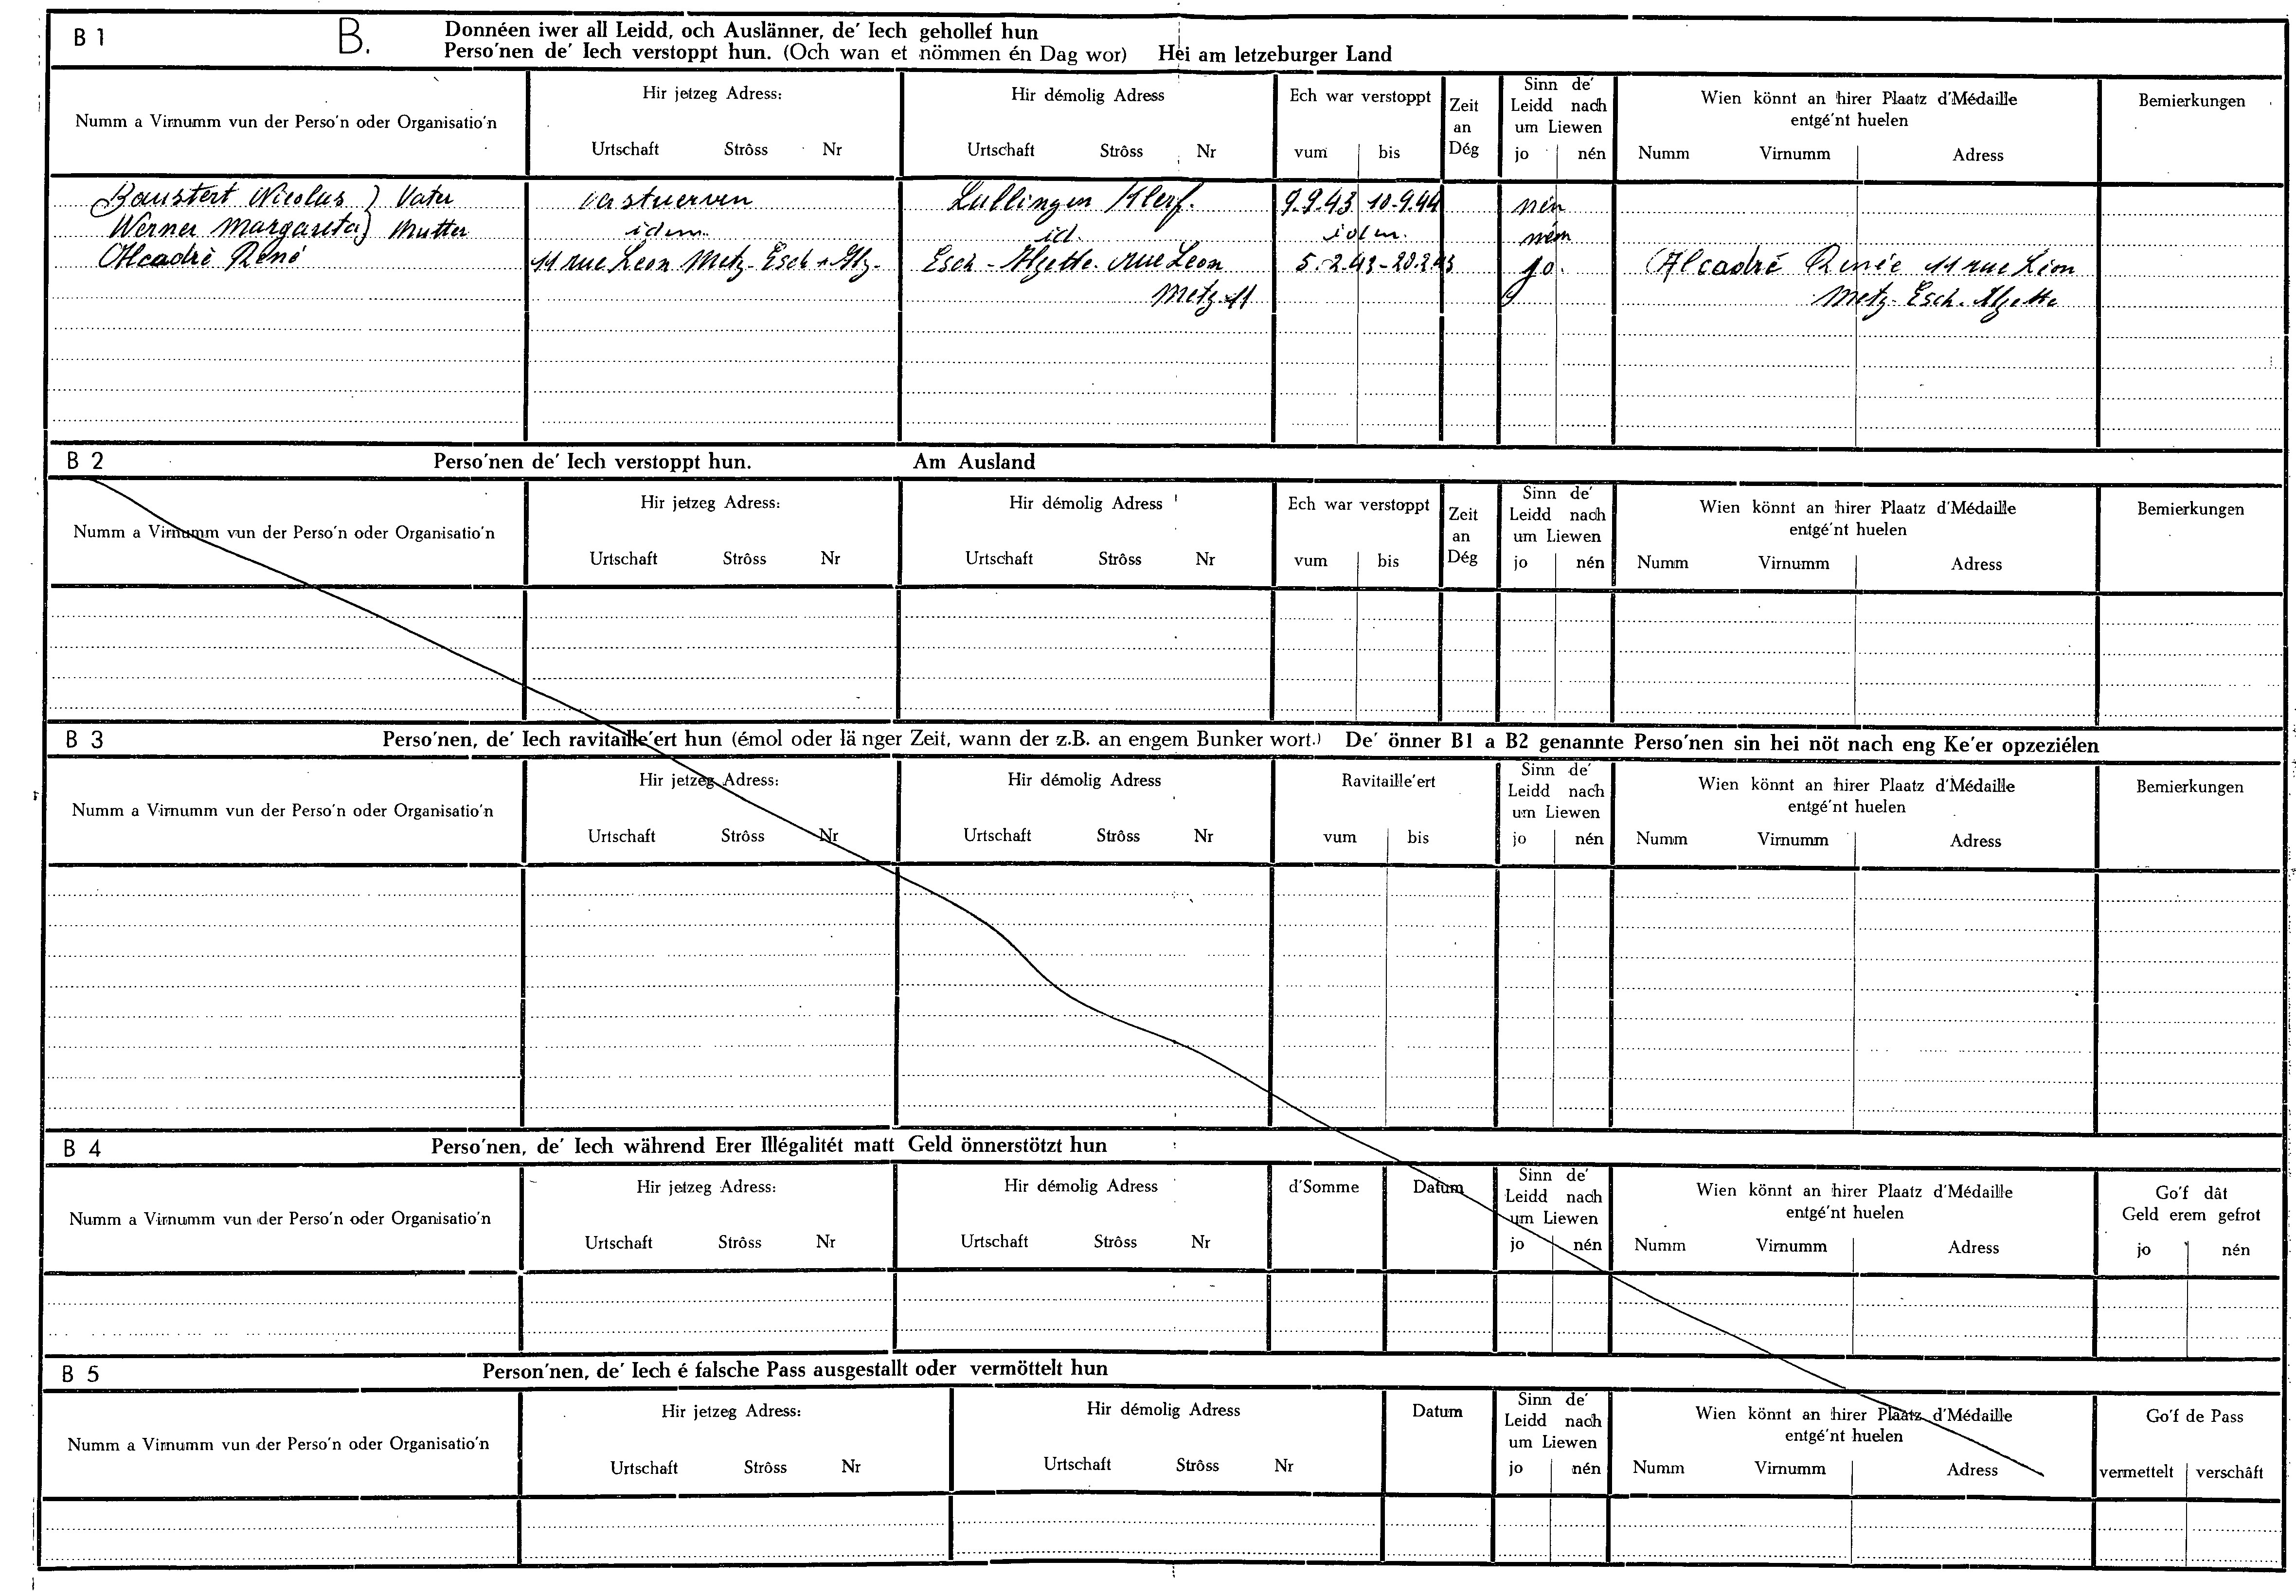 B 1 B. Donnéen iwer all Leidd, och Auslänner, de' Iech gehollef hun
Perso'nen de' Iech verstoppt hun. (Och wan et nömmen én Dag wor) Hei am letzeburger Land
Numm a Virnumm vun der Perso'n oder Organisatio'n
Hir jetzeg Adress:
Urtschaft Strôss Nr
Hir démolig Adress
Urtschaft Strôss Nr
Ech war verstoppt
vum bis
Zeit
an
Dég
Sinn de'
Leidd nach
um Liewen
jo nén
Wien könnt an hirer Plaatz d'Médaille
entgé'nt huelen
Numm Virnumm Adress
Bemierkungen
Baustert Nicolus ) Vater vastuerven Lullingen Klerf. 9.9.43 10.9.44 nén
Werner Margareta ) Mutter idem. id. idem. nén
Alcadrè René 11 rue Leon Metz Esch Alz. Esch-Alzette rue Leon 5.2.43-20.2.43 jo. Alcadré Renée 11 rue Léon
Metz 11 Metz Esch. Alzette
B 2 Perso'nen de' Iech verstoppt hun. Am Ausland
Numm a Virnumm vun der Perso'n oder Organisatio'n
Hir jetzeg Adress:
Urtschaft Strôss Nr
Hir démolig Adress
Urtschaft Strôss Nr
Ech war verstoppt
vum bis
Zeit
an
Dég
Sinn de'
Leidd nach
um Liewen
jo nén
Wien könnt an hirer Plaatz d'Médaille
entgé'nt huelen
Numm Virnumm Adress
Bemierkungen
B 3 Perso'nen, de' Iech ravitaille'ert hun (émol oder lä nger Zeit, wann der z.B. an engem Bunker wort.) De' önner B1 a B2 genannte Perso'nen sin hei nöt nach eng Ke'er opzeziélen
Numm a Virnumm vun der Perso'n oder Organisatio'n
Hir jetzeg Adress:
Urtschaft Strôss Nr
Hir démolig Adress
Urtschaft Strôss Nr
Ravitaille'ert
vum bis
Sinn de'
Leidd nach
um Liewen
jo nén
Wien könnt an hirer Plaatz d'Médaille
entgé'nt huelen
Numm Virnumm Adress
Bemierkungen
B 4 Perso'nen, de' Iech während Erer Illégalitét matt Geld önnerstötzt hun
Numm a Virnumm vun der Perso'n oder Organisatio'n
Hir jetzeg Adress:
Urtschaft Strôss Nr
Hir démolig Adress
Urtschaft Strôss Nr
d'Somme
Datum
Sinn de'
Leidd nach
um Liewen
jo nén
Wien könnt an hirer Plaatz d'Médaille
entgé'nt huelen
Numm Virnumm Adress
Go'f dât
Geld erem gefrot
jo nén
B 5 Person'nen, de' Iech é falsche Pass ausgestallt oder vermöttelt hun
Numm a Virnumm vun der Perso'n oder Organisatio'n
Hir jetzeg Adress:
Urtschaft Strôss Nr
Hir démolig Adress
Urtschaft Strôss Nr
Datum
Sinn de'
Leidd nach
um Liewen
jo nén
Wien könnt an hirer Plaatz d'Médaille
entgé'nt huelen
Numm Virnumm Adress
Go'f de Pass
vermettelt verschâft